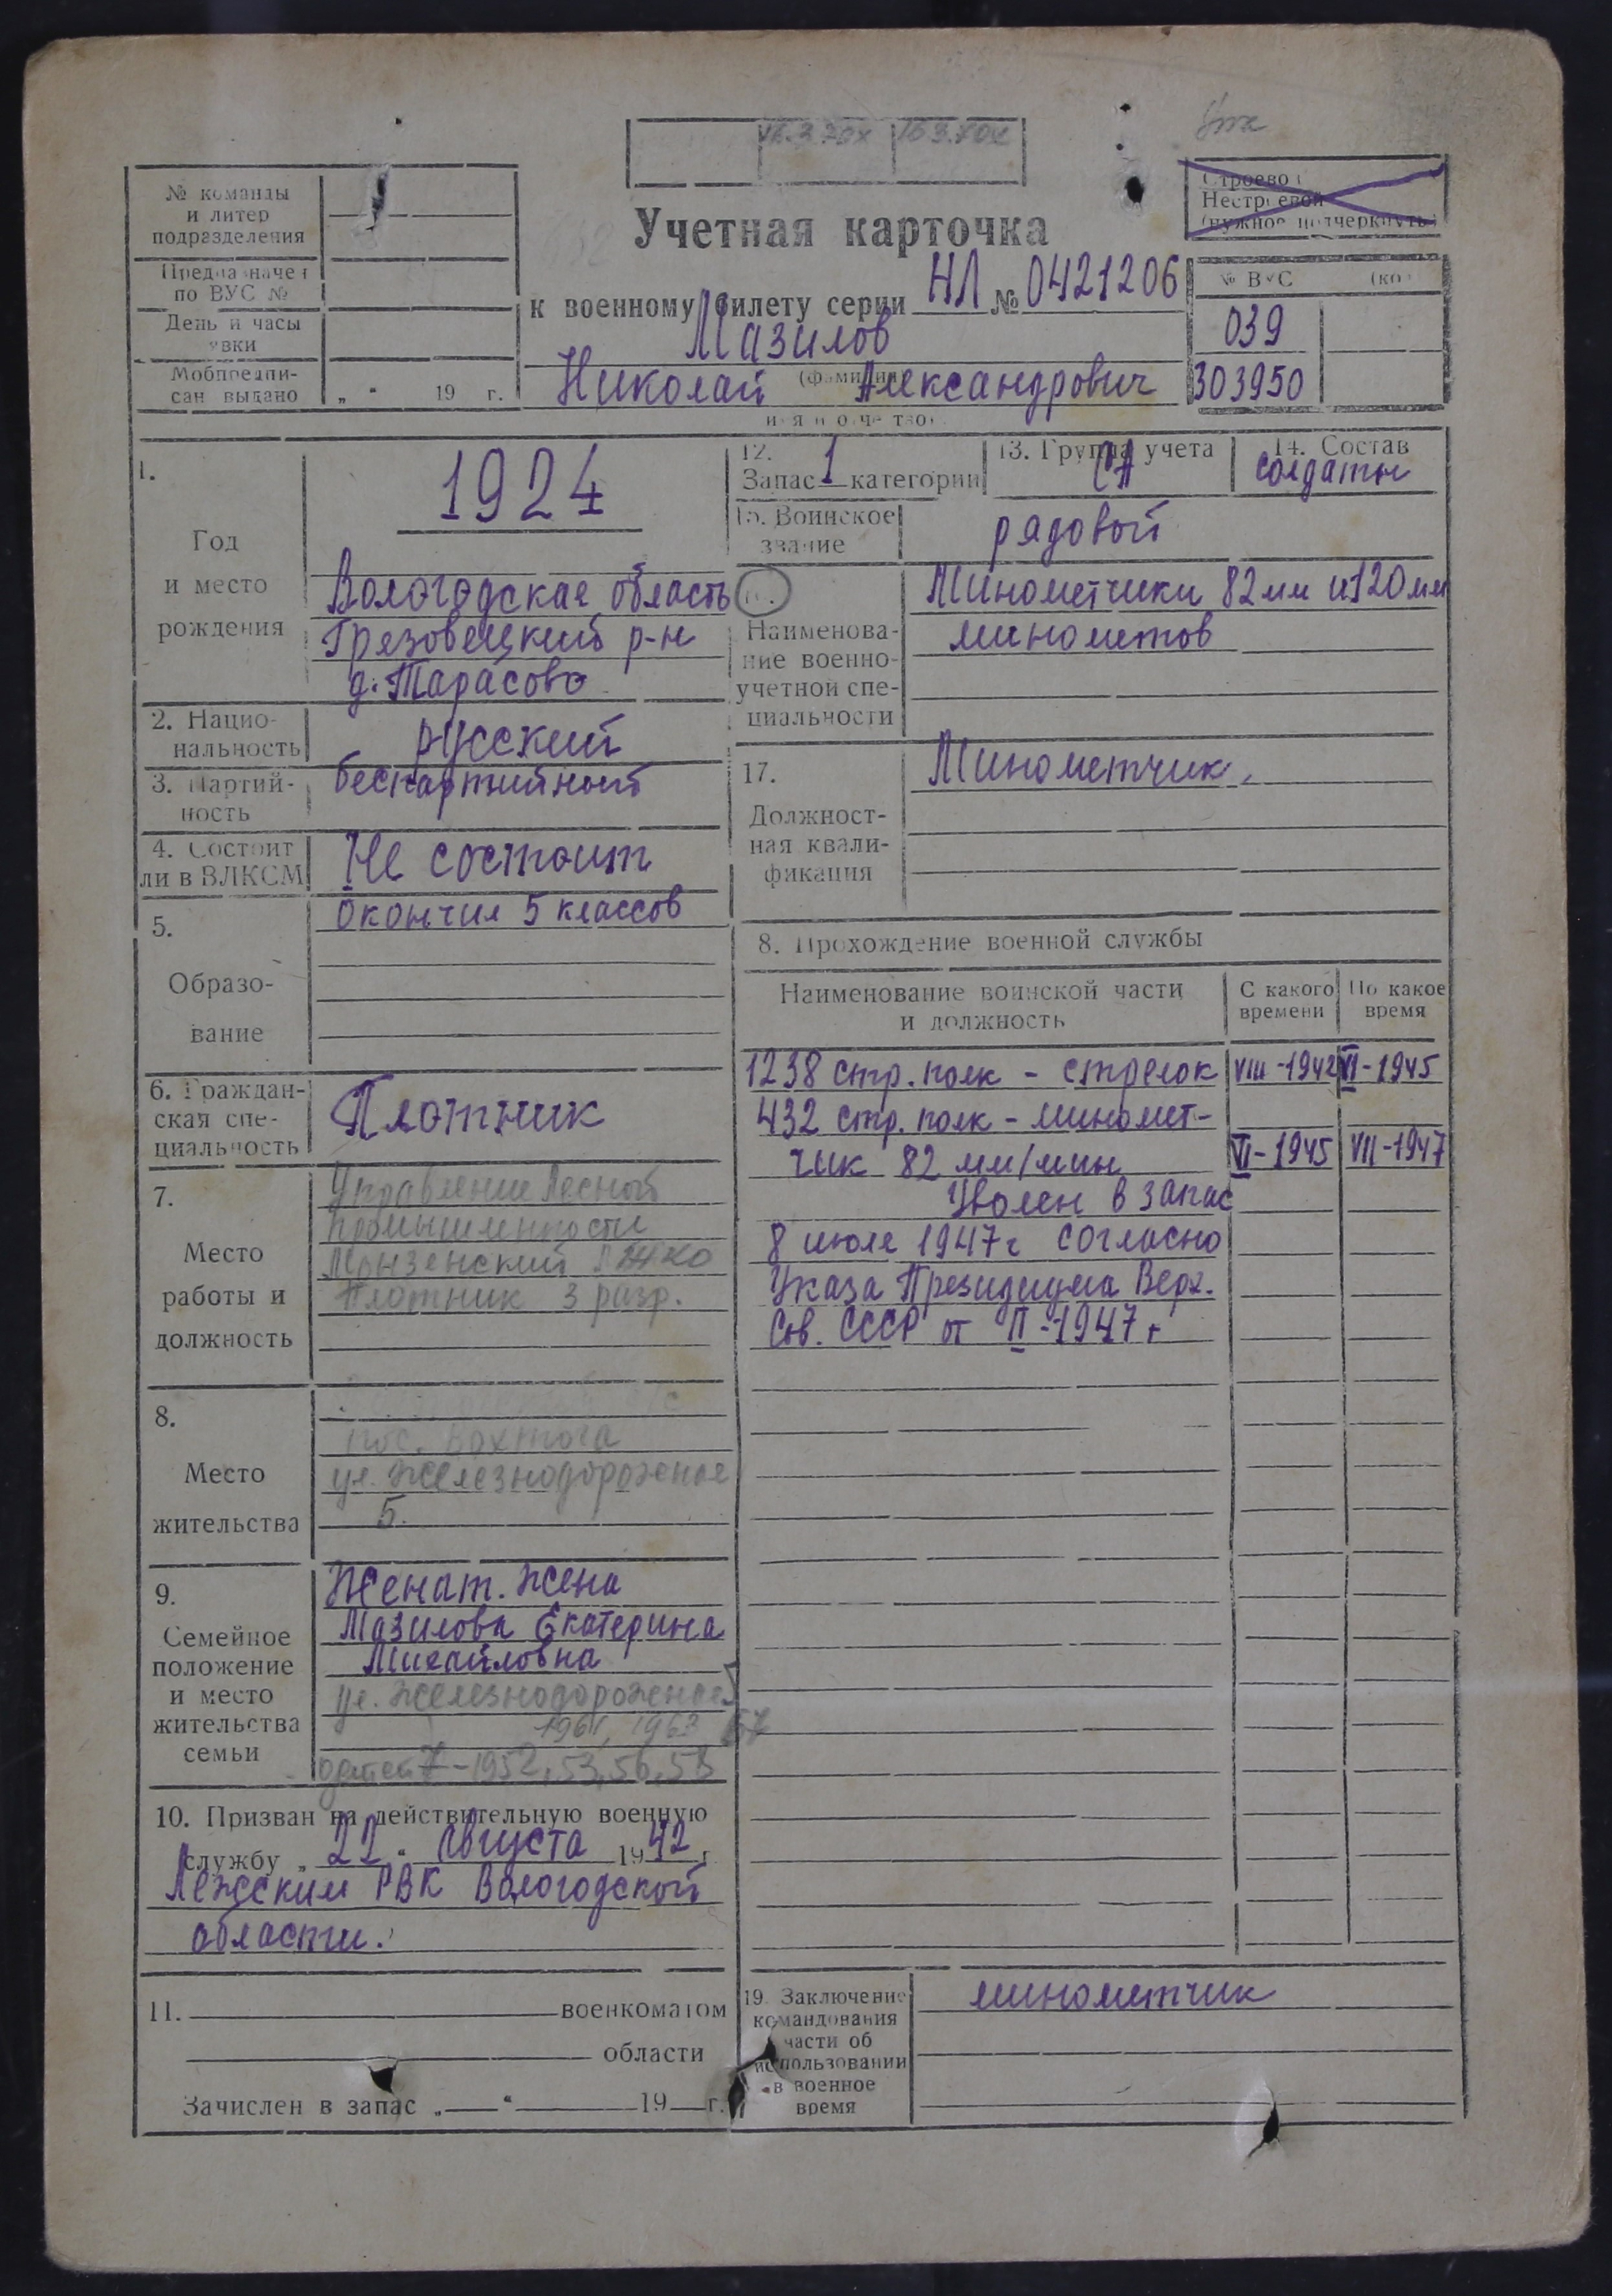 № команды
и литер
подразделения
Предназначен
по ВУС №
День и часы
явки
Мобпредпи-
сан выдано
„ “ 19 г.
Учетная карточка
к военному билету серии НЛ № 0421206
Мазилов
(фамилия)
Николай Александрович
имя и отчество
Строевой
Нестроевой
(нужное подчеркнуть)
№ ВУС
039
303950
1.
Год
и место
рождения
1924
Вологодская область
Грязовецкий р-н
д. Тарасово
2. Нацио-
нальность
русский
3. Партий-
ность
беспартийный
4. Состоит
ли в ВЛКСМ
Не состоит
5.
Образо-
вание
Окончил 5 классов
6. Граждан-
ская спе-
циальность
Плотник
7.
Место
работы и
должность
Управление Лесной
промышленности
Монзенский ЛЖКО
Плотник 3 разр.
8.
Место
жительства
пос. Вохтога
ул. Железнодорожная
5.
9.
Семейное
положение
и место
жительства
семьи
Женат. Жена
Мазилова Екатерина
Михайловна
ул. Железнодорожная 5
1961, 1963 67
детей 7 - 1952, 53, 56, 58
10. Призван на действительную военную
службу „ 22 “ августа 1942 г.
Лежским РВК Вологодской
области.
11. военкоматом
области
Зачислен в запас „ “ 19 г.
12.
Запас 1 категории
13. Группа учета
СА
14. Состав
солдаты
15. Воинское
звание
рядовой
16.
Наименова-
ние военно-
учетной спе-
циальности
Минометчики 82 мм и 120 мм
минометов
17.
Должност-
ная квали-
фикация
Минометчик.
8. Прохождение военной службы
Наименование воинской части
и должность
С какого
времени
По какое
время
1238 стр. полк - стрелок VIII-1942 VI-1945
432 стр. полк - миномет-
чик 82 мм/мин VI-1945 VII-1947
Уволен в запас
8 июля 1947 г согласно
Указа Президиума Верх.
Сов. СССР от II-1947 г
19. Заключение
командования
части об
использовании
в военное
время
минометчик